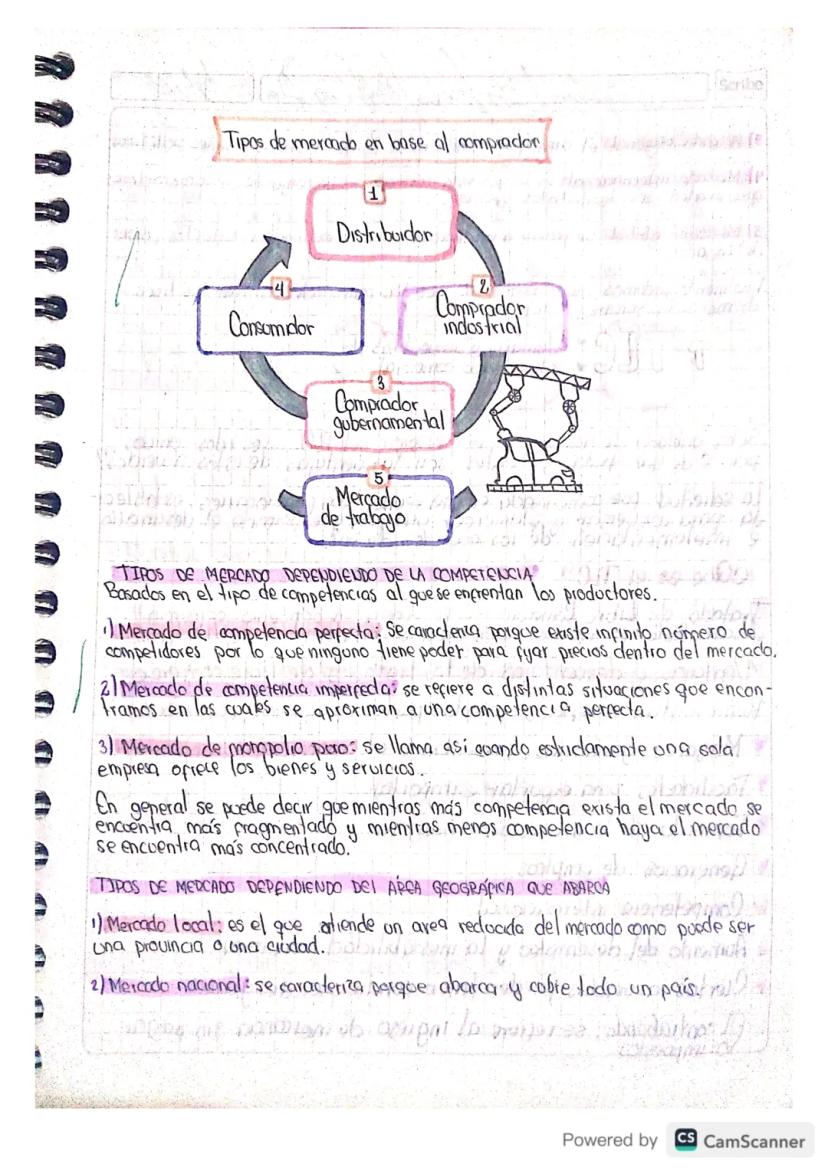 Scribe
Tipos de mercado en base al comprador
1
Distribuidor
2
Comprador
industrial
3
Comprador
gubernamental
4
Consumidor
5
Mercado
de trabajo
TIPOS DE MERCADO DEPENDIENDO DE LA COMPETENCIA
Basados en el tipo de competencias al que se enfrentan los productores.
1) Mercado de competencia perfecta: Se caracteriza porque existe infinito número de
competidores por lo que ninguno tiene poder para fijar precios dentro del mercado.
2) Mercado de competencia imperfecta: se refiere a distintas situaciones que encon-
tramos en las cuales se aproximan a una competencia perfecta.
3) Mercado de monopolio puro: se llama así cuando estrictamente una sola
empresa ofrece los bienes y servicios.
En general se puede decir que mientras más competencia exista el mercado se
encuentra más fragmentado y mientras menos competencia haya el mercado
se encuentra más concentrado.
TIPOS DE MERCADO DEPENDIENDO DEL ÁREA GEOGRÁFICA QUE ABARCA
1) Mercado local: es el que atiende un area reducida del mercado como puede ser
una provincia o una ciudad.
2) Mercado nacional: se caracteriza porque abarca y cobre todo un país.
Powered by CS CamScanner